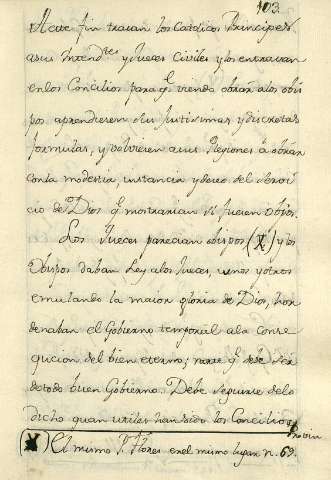 103
A este fin traian los Catolicos Principes
a sus Intend.tes y Jueces Civiles y los entravan
en los Concilios para q.e viendo obrar a los obis
pos aprendiesen sus justisimas y discretas
formulas, y volviesen a sus Regiones á obrar
con la modestia, instancia y deseo del servi
cio de Dios q.e mostrarian si fuesen Obispos.
Los Jueces parecian obispos (X) y los
Obispos daban Ley a los Jueces, unos y otros
emulando la maior gloria de Dios, hor
denaban el Gobierno temporal a la conse
qucion del bien eterno; norte q.e debe ser
de todo buen Gobierno. Debe seguirse de lo
dicho quan utiles han sido los Concilios
Provin
(X) El mismo P. Florez en el mismo lugar n. 69.